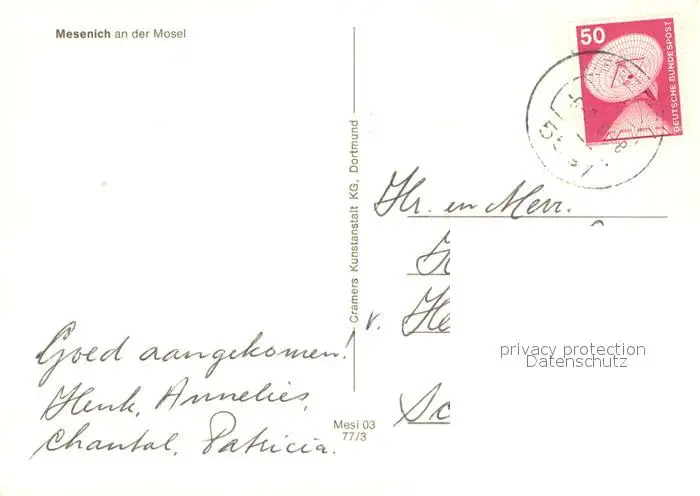 Mesenich an der Mosel
50
DEUTSCHE BUNDESPOST
Cramers Kunstanstalt KG, Dortmund
Hr. en Mevr.
v. He
Sc
privacy protection
Datenschutz
Goed aangekomen!
Henk, Annelies,
Chantal, Patricia.
Mesi 03
77/3